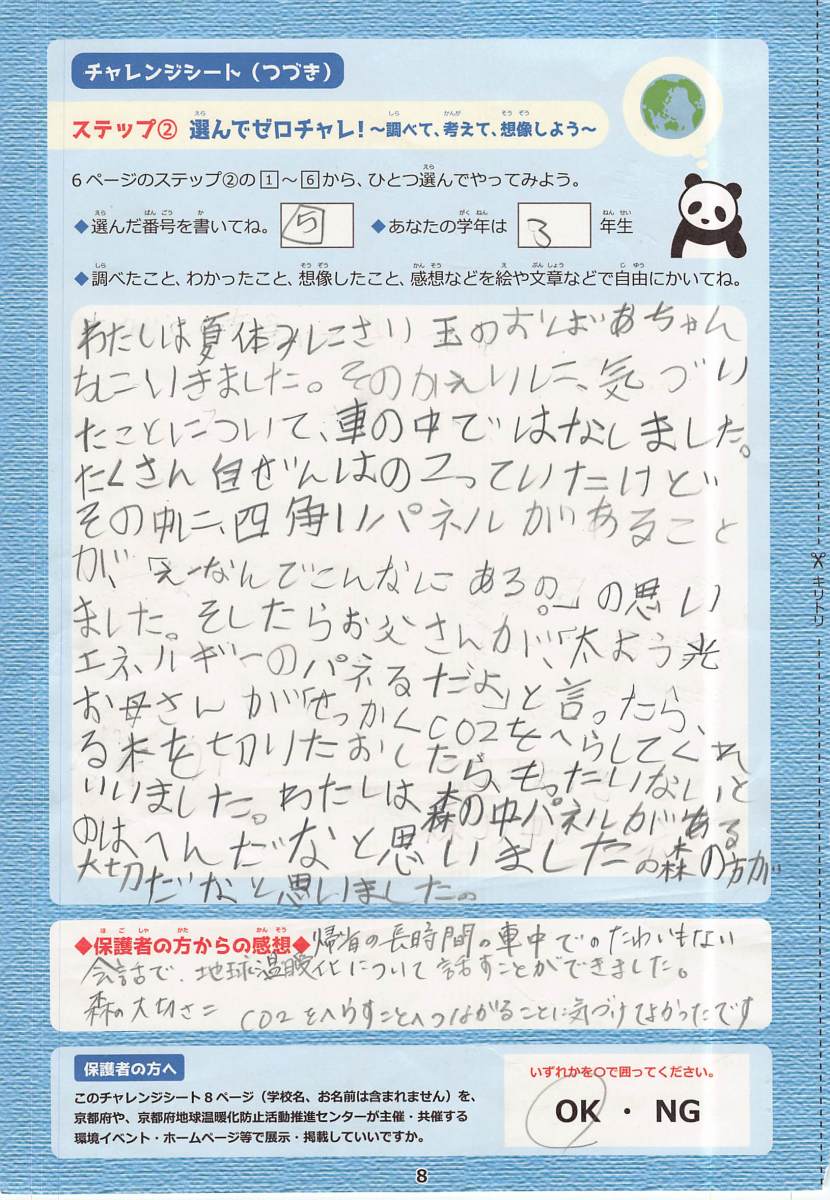 チャレンジシート（つづき）
ステップ② 選んでゼロチャレ！～調べて、考えて、想像しよう～
6ページのステップ②の1～6から、ひとつ選んでやってみよう。
◆選んだ番号を書いてね。 5 ◆あなたの学年は 3 年生
◆調べたこと、わかったこと、想像したこと、感想などを絵や文章などで自由にかいてね。
わたしは夏休みにさい玉のおばあちゃん
ちにいきました。そのかえりに、気づい
たことについて、車の中ではなしました。
たくさん自ぜんはのこっていたけど
その中に、四角いパネルがあること
が、「えーなんでこんなにあるの。」の思い
ました。そしたらお父さんが、「太よう光
エネルギーのパネるだよ」と言ったら、
お母さんが「せっかくCO2をへらしてくれ
る木を切りたおしたら、もったいない」と
いいました。わたしは、森の中パネルがある
のは、へんだなと思いました。の森の方が
大切だなと思いました。
◆保護者の方からの感想◆ 帰省の長時間の車中でのたわいもない
会話で、地球温暖化について話すことができました。
森の大切さに CO2をへらすことへつながることに気づけてよかったです
保護者の方へ
このチャレンジシート8ページ（学校名、お名前は含まれません）を、
京都府や、京都府地球温暖化防止活動推進センターが主催・共催する
環境イベント・ホームページ等で展示・掲載していいですか。
いずれかを○で囲ってください。
OK ・ NG
キリトリ
8